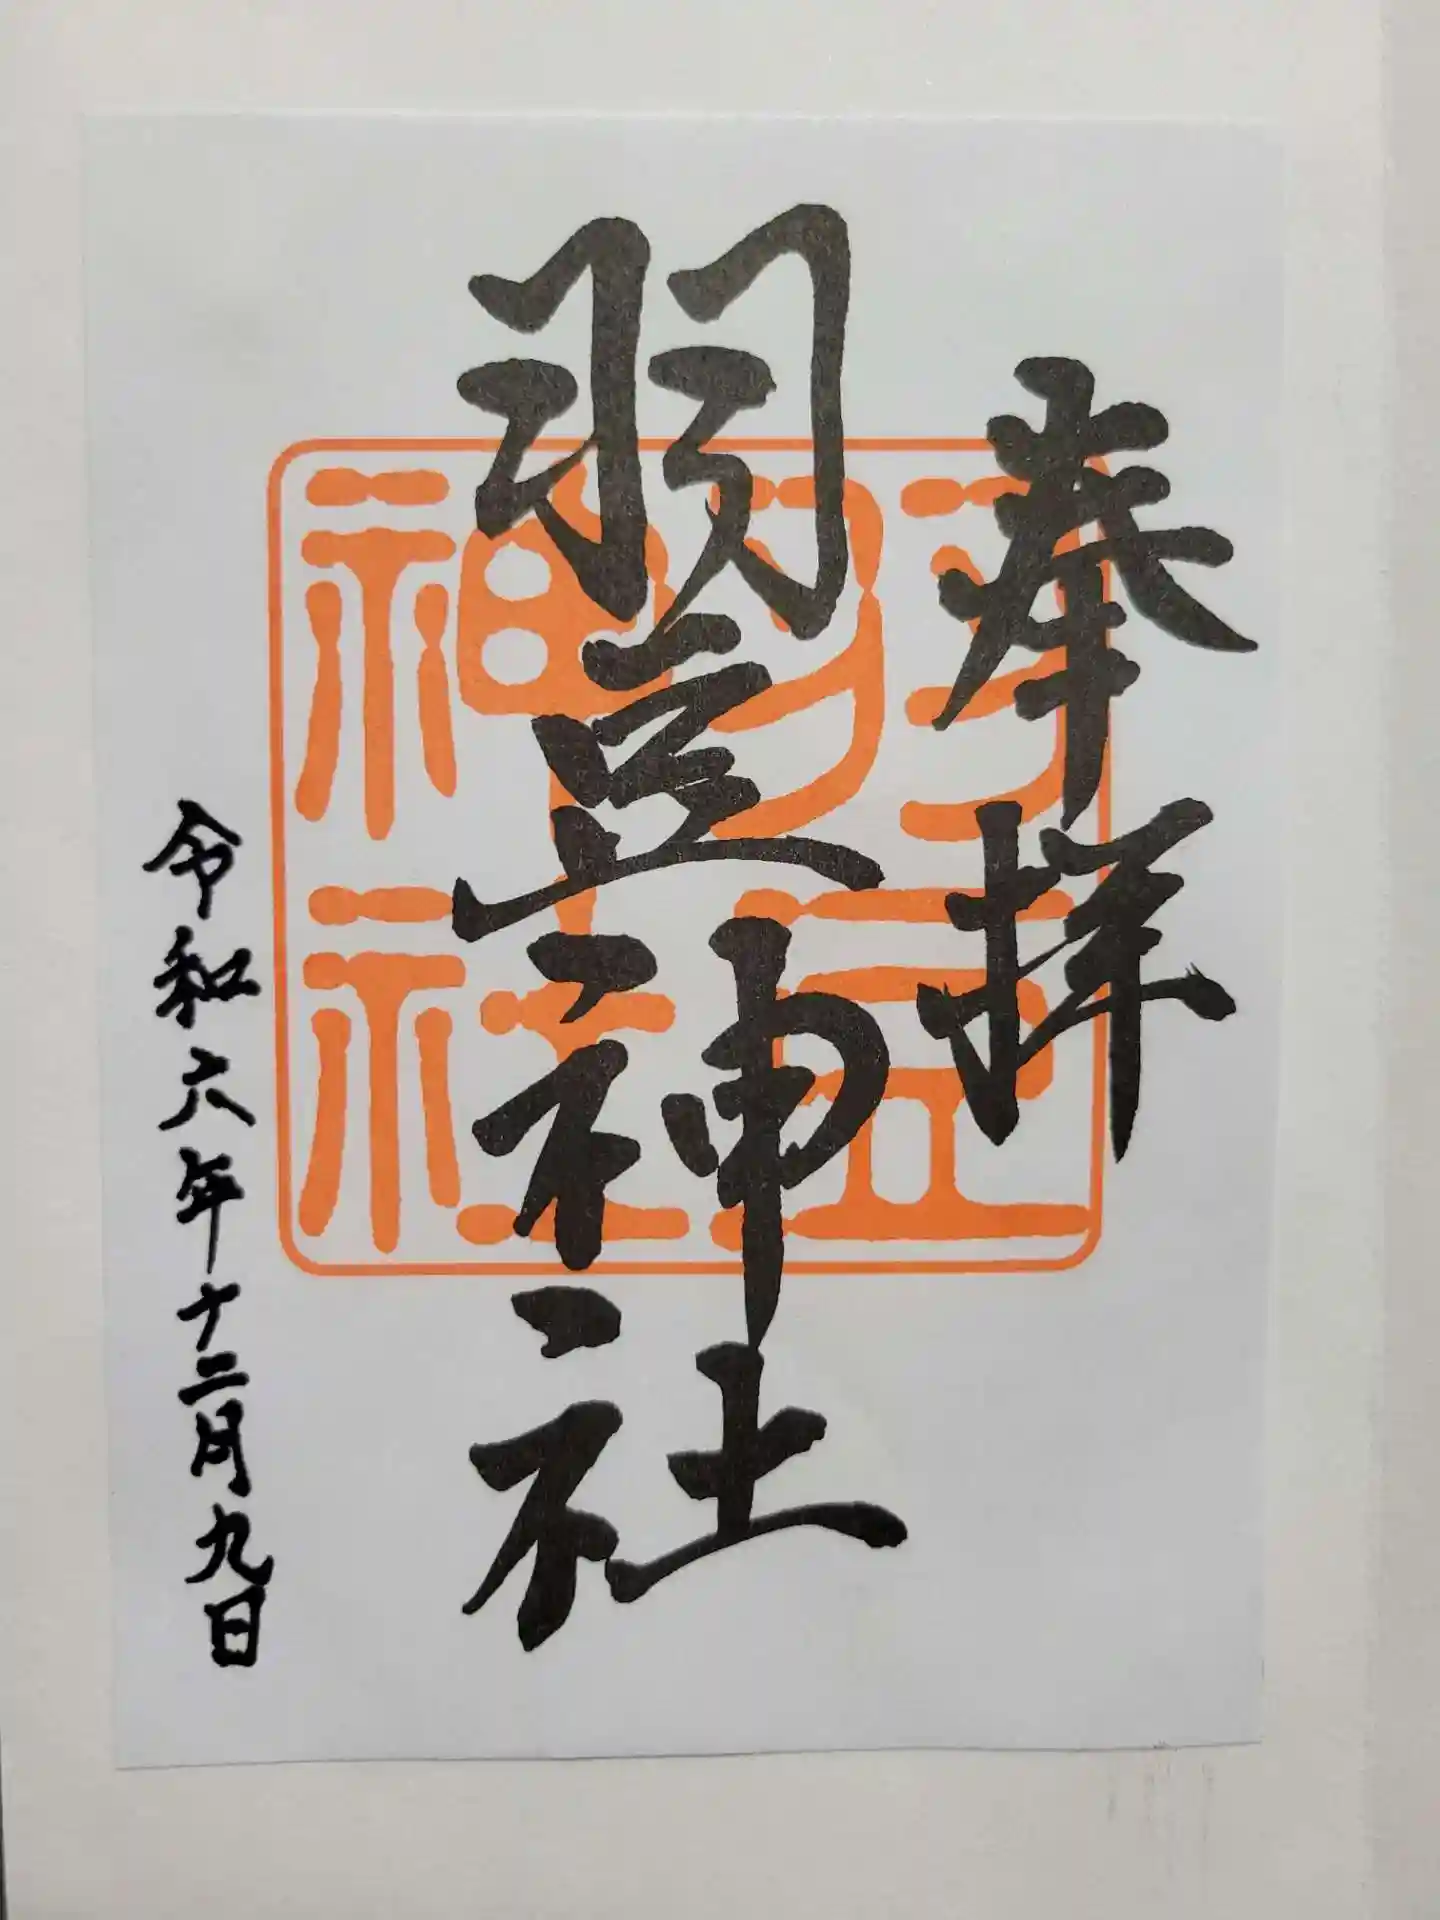 奉拝
羽豆神社
令和六年十二月九日
羽豆
神社